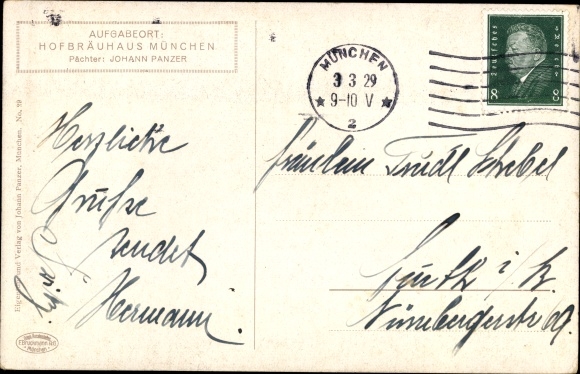 AUFGABEORT:
HOFBRÄUHAUS MÜNCHEN
Pächter: JOHANN PANZER
MÜNCHEN
3 3 29
9-10 V
2
Deutsches Reich
8 8
Herzliche
Grüße
sendet
Hermann.
Fritz.
Fräulein Trudl Strebel
Fürth i/B.
Nürnbergerstr 69.
Eigentum und Verlag von Johann Panzer, München, No. 29
F. Bruckmann AG
München